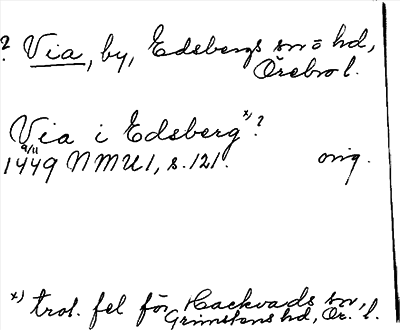 ? Via, by, Edsbergs sn o hd,
Örebro l.
Via i Edsberg x) ?
9/11
1449 NMU 1, s. 121. orig.
x) trol. fel för Hackvads sn,
Grimstens hd, Ör. l.